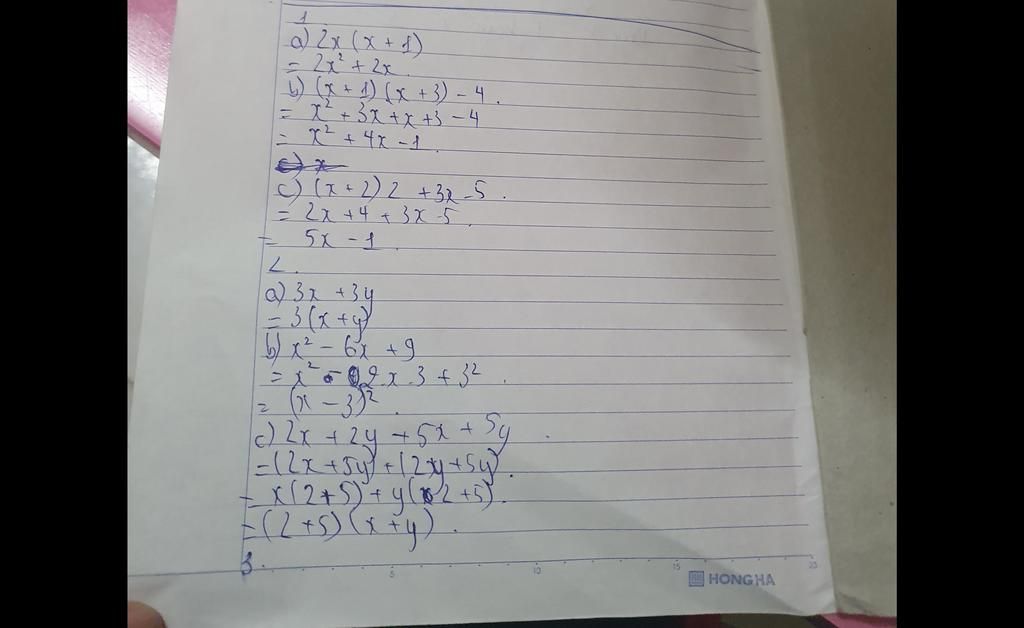 1
a) 2x (x + 1)
= 2x² + 2x.
b) (x + 1) (x + 3) - 4.
= x² + 3x + x + 3 - 4
= x² + 4x - 1.
c) x
c) (x + 2) 2 + 3x - 5.
= 2x + 4 + 3x - 5.
= 5x - 1.
2.
a) 3x + 3y
= 3(x + y)
b) x² - 6x + 9
= x² - 2.x.3 + 3².
= (x - 3)².
c) 2x + 2y + 5x + 5y.
= (2x + 5y) + (2y + 5y).
= x(2 + 5) + y(2 + 5).
= (2 + 5) (x + y).
3.
5 10 15 20
HONG HA